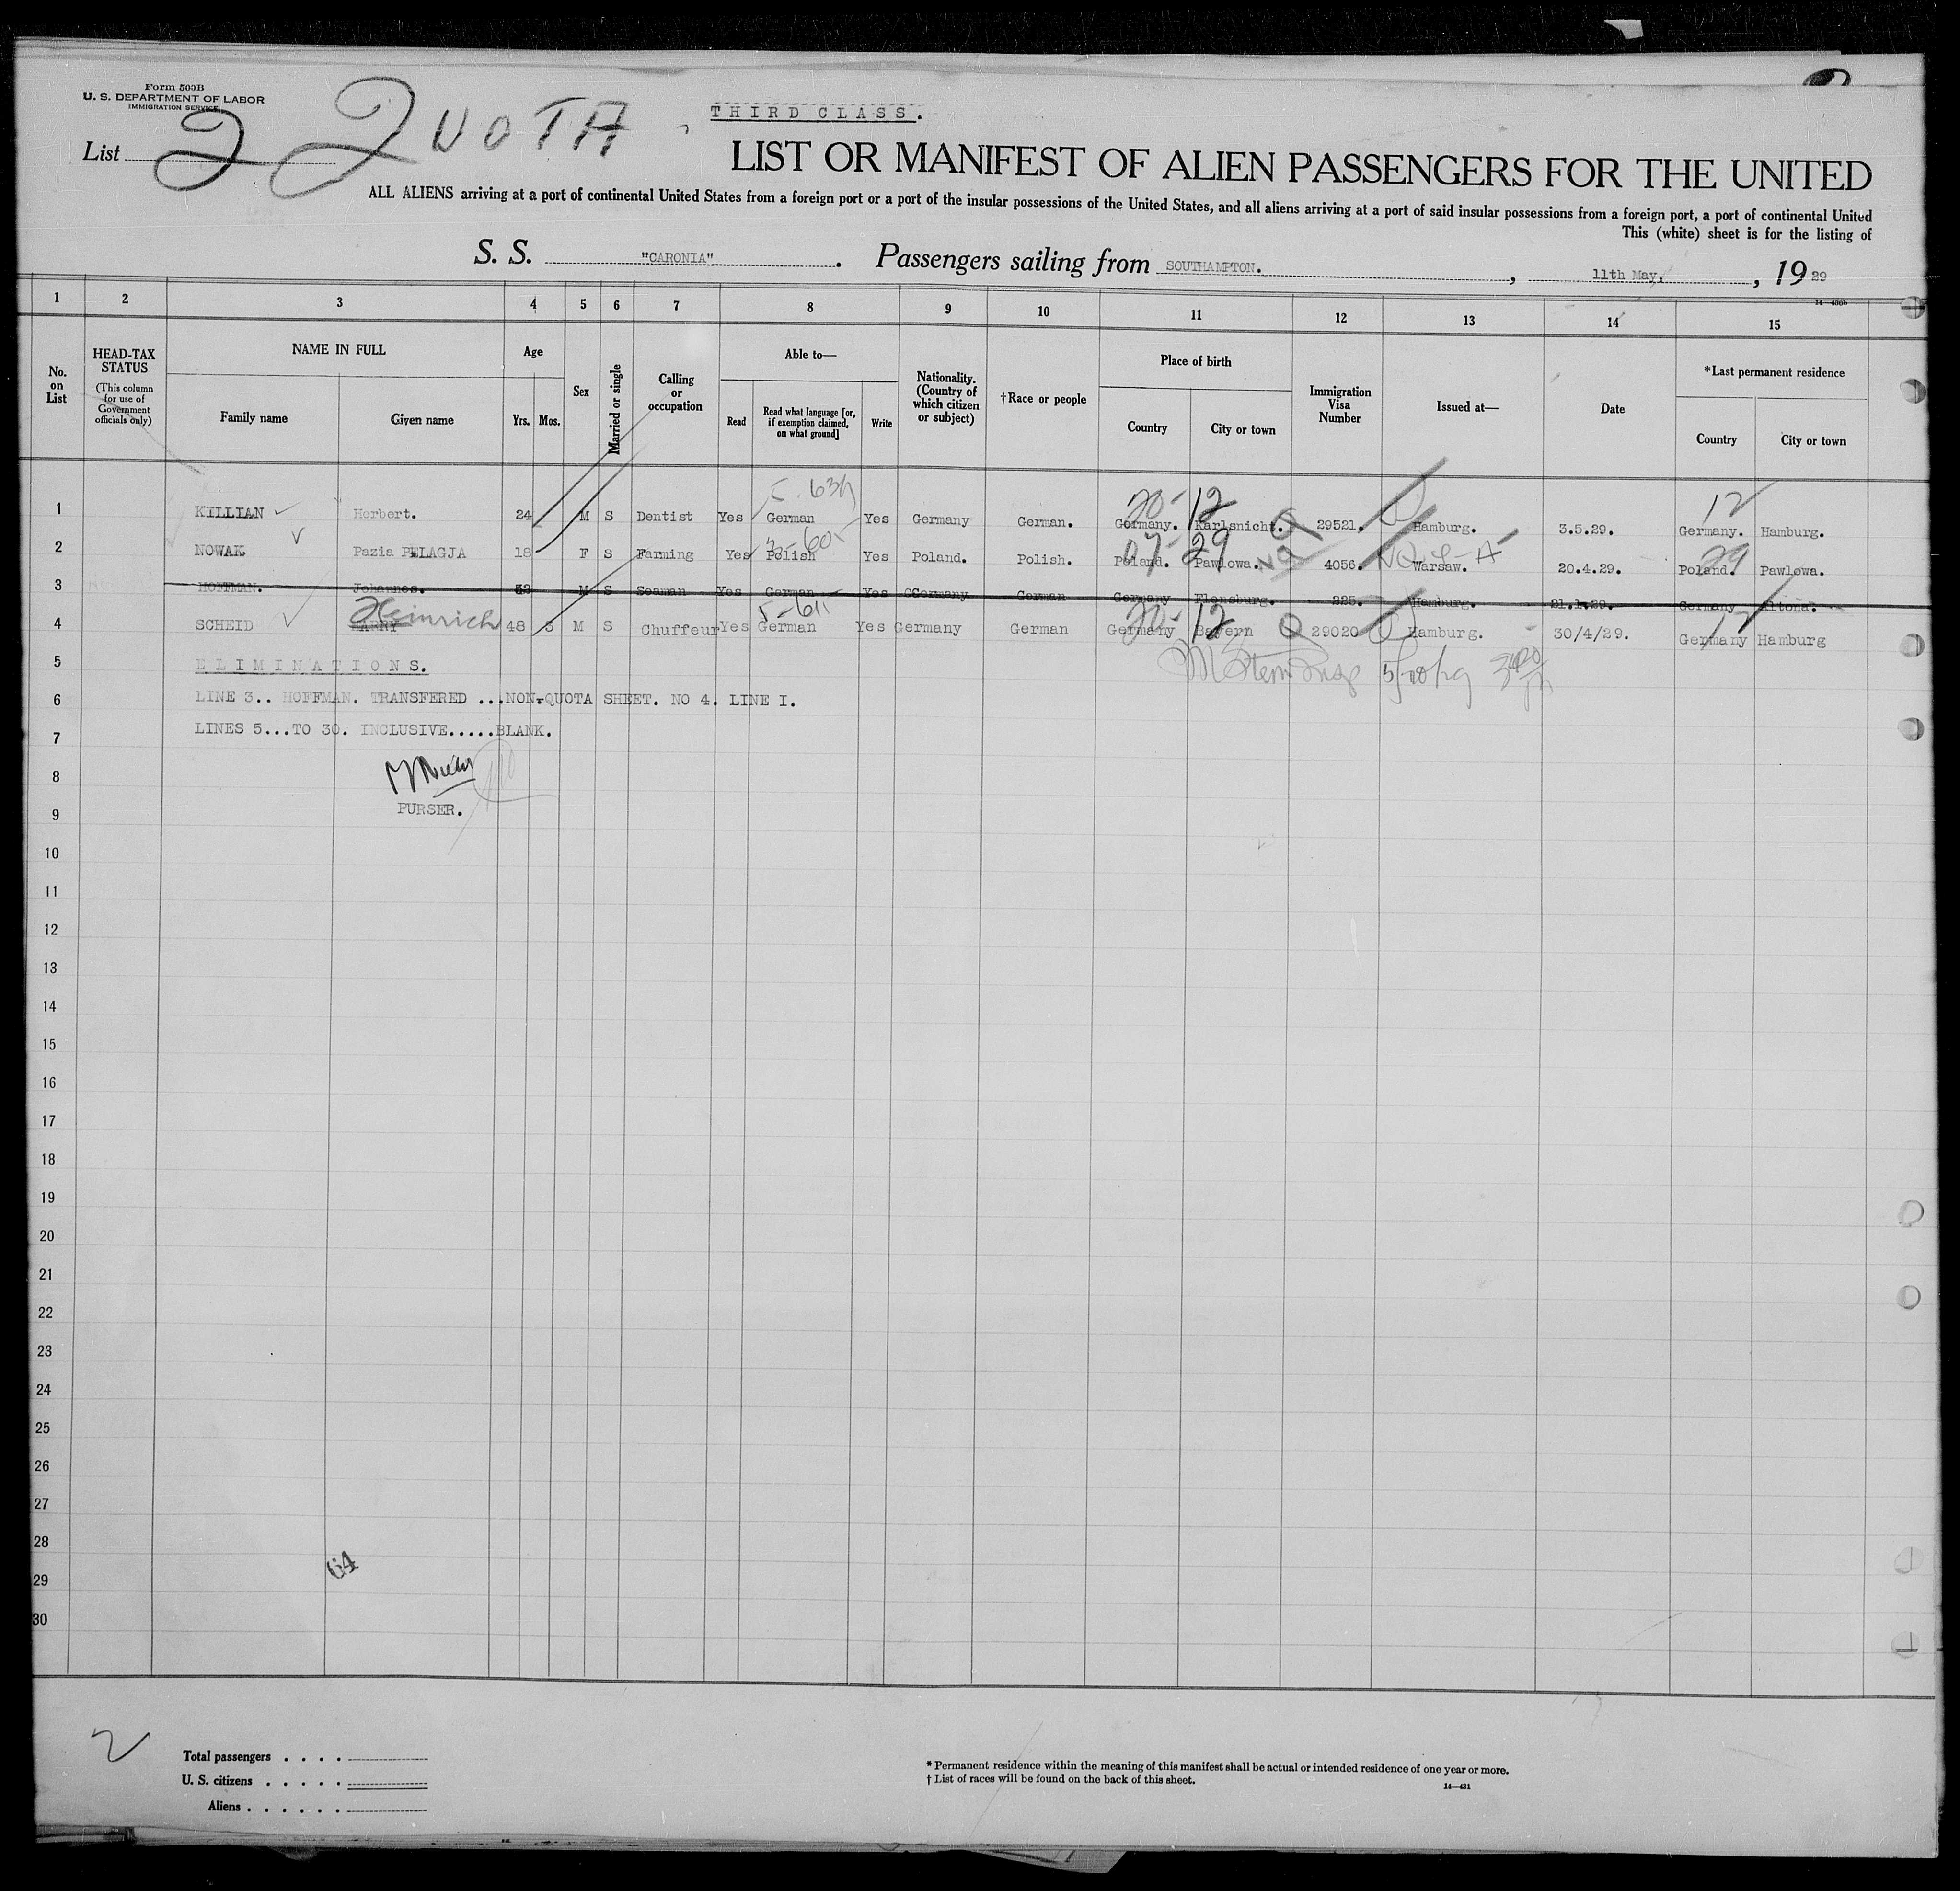 Form 500B
U. S. DEPARTMENT OF LABOR
IMMIGRATION SERVICE
List 2 QUOTA
THIRD CLASS.
LIST OR MANIFEST OF ALIEN PASSENGERS FOR THE UNITED
ALL ALIENS arriving at a port of continental United States from a foreign port or a port of the insular possessions of the United States, and all aliens arriving at a port of said insular possessions from a foreign port, a port of continental United
This (white) sheet is for the listing of
S. S. "CARONIA". Passengers sailing from SOUTHAMPTON. , 11th May, , 19 29
14—430b
1 2 3 4 5 6 7 8 9 10 11 12 13 14 15
No. on List
HEAD-TAX STATUS
(This column for use of Government officials only)
NAME IN FULL
Family name Given name
Age
Yrs. Mos.
Sex
Married or single
Calling or occupation
Able to—
Read Read what language [or, if exemption claimed, on what ground] Write
Nationality. (Country of which citizen or subject)
†Race or people
Place of birth
Country City or town
Immigration Visa Number
Issued at—
Date
*Last permanent residence
Country City or town
5-63h
20- 12 12
1 KILLIAN Herbert. 24 M S Dentist Yes German Yes Germany German. Germany. Karlsnicht. Q 29521. Hamburg. 3.5.29. Germany. Hamburg.
07- 29 29
2 NOWAK Pazia PELAGJA 18 F S Farming Yes Polish Yes Poland. Polish. Poland. Pawlowa. NQ 4056. Warsaw. 20.4.29. Poland. Pawlowa.
3 HOFFMAN. Johannes. M S Seaman Yes German Yes Germany German Germany Flensburg. 225. Hamburg. 21.1.29. Germany Altona.
Heinrich 5-611 20- 12
4 SCHEID HARRY 48 5 M S Chuffeur Yes German Yes Germany German Germany Bayern Q 29020 Hamburg. 30/4/29. Germany Hamburg
5 ELIMINATIONS.
6 LINE 3.. HOFFMAN. TRANSFERED ...NON-QUOTA SHEET. NO 4. LINE I.
7 LINES 5...TO 30. INCLUSIVE.....BLANK.
8
9 PURSER.
10
11
12
13
14
15
16
17
18
19
20
21
22
23
24
25
26
27
28
64
29
30
2
Total passengers . . . .
U. S. citizens . . . . .
Aliens . . . . . .
* Permanent residence within the meaning of this manifest shall be actual or intended residence of one year or more.
† List of races will be found on the back of this sheet.
14—431